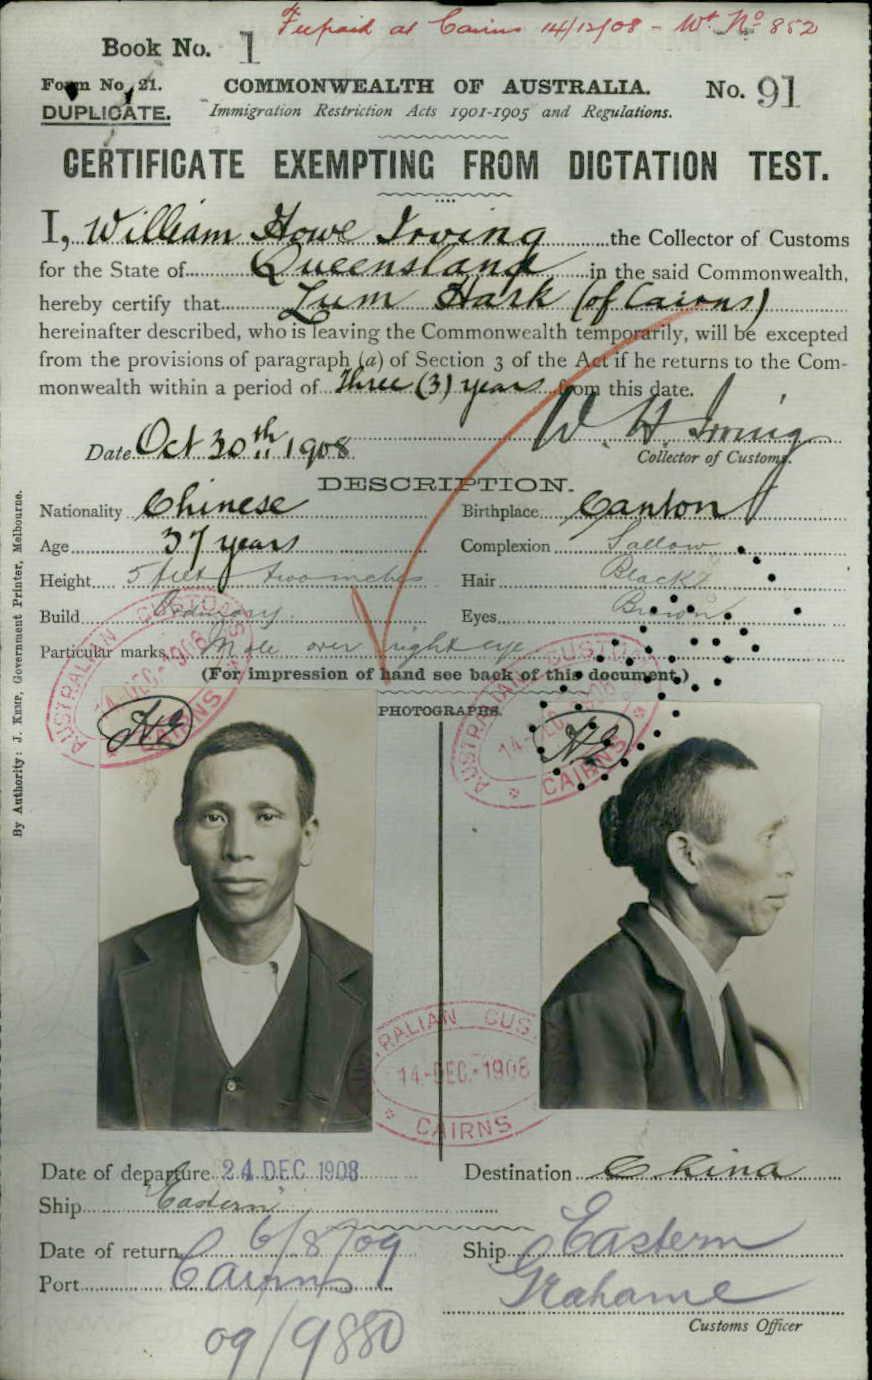 Fee paid at Cairns 14/12/08 - Wt. No 852
Book No. 1
Form No. 21.
COMMONWEALTH OF AUSTRALIA.
No. 91
DUPLICATE.
Immigration Restriction Acts 1901-1905 and Regulations.
CERTIFICATE EXEMPTING FROM DICTATION TEST.
I, William Howe Irving the Collector of Customs
for the State of Queensland in the said Commonwealth,
hereby certify that Lum Hark (of Cairns)
hereinafter described, who is leaving the Commonwealth temporarily, will be excepted
from the provisions of paragraph (a) of Section 3 of the Act if he returns to the Com-
monwealth within a period of Three (3) years from this date.
W. H. Irving
Date Oct 30th 1908
Collector of Customs.
DESCRIPTION.
Nationality Chinese Birthplace Canton
Age 37 years Complexion Sallow
Height 5 feet two inches Hair Black
Build Ordinary Eyes Brown
Particular marks, Mole over right eye
(For impression of hand see back of this document.)
PHOTOGRAPHS.
AUSTRALIAN CUSTOMS
14-DEC.-1908
CAIRNS
AUSTRALIAN CUSTOMS
14-DEC.-1908
CAIRNS
RALIAN CUS
14-DEC.-1908
CAIRNS
Date of departure 24 DEC 1908 Destination China
Ship Eastern
Date of return 6/8/09 Ship Eastern
Port Cairns Grahame
Customs Officer
09/9880
By Authority: J. KEMP, Government Printer, Melbourne.